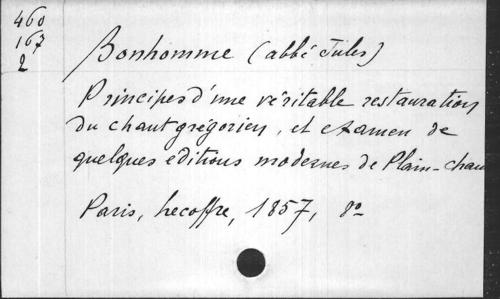 460
167
2
Bonhomme (abbé Jules)
Principes d'une véritable restauration
du chant grégorien, et examen de
quelques éditions modernes de Plain-chan
Paris, Lecoffre, 1857, 8o